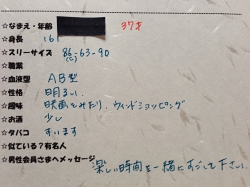 ☆なまえ・年齢 37才
☆身長 16
☆スリーサイズ 86-63-90
(C)
☆職業
☆血液型 AB型
☆性格 明るい
☆趣味 映画をみたり、ウィンドショッピング
☆お酒 少し
☆タバコ すいます
☆似ている？有名人
☆男性会員さまへメッセージ
楽しい時間を一緒にすごして下さい。